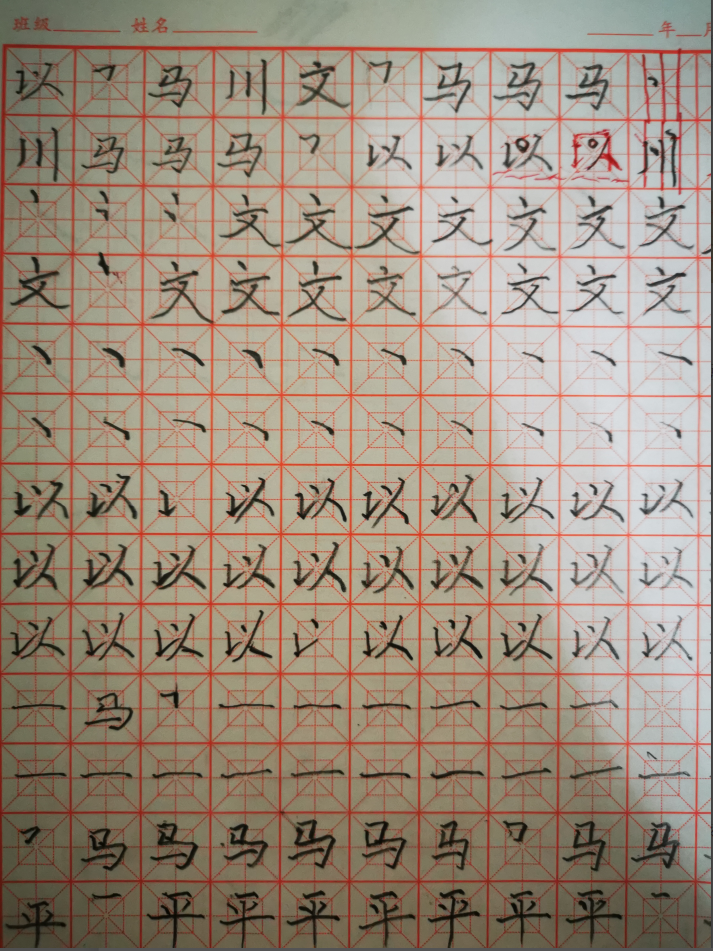 班级 姓名 年
以 马 川 文 马 马 马
川 马 马 马 以 以 以 以 川
文 文 文 文 文 文 文
文 文 文 文 文 文 文 文 文
丶 丶 丶 丶 丶 丶 丶 丶 丶 丶
丶 丶 丶 丶 丶 丶 丶 丶 丶 丶
以 以 以 以 以 以 以 以 以
以 以 以 以 以 以 以 以 以 以
以 以 以 以 以 以 以 以 以
一 马 一 一 一 一 一 一
一 一 一 一 一 一 一 一 一 一
马 马 马 马 马 马 马 马
平 一 平 平 平 平 平 平 平 一